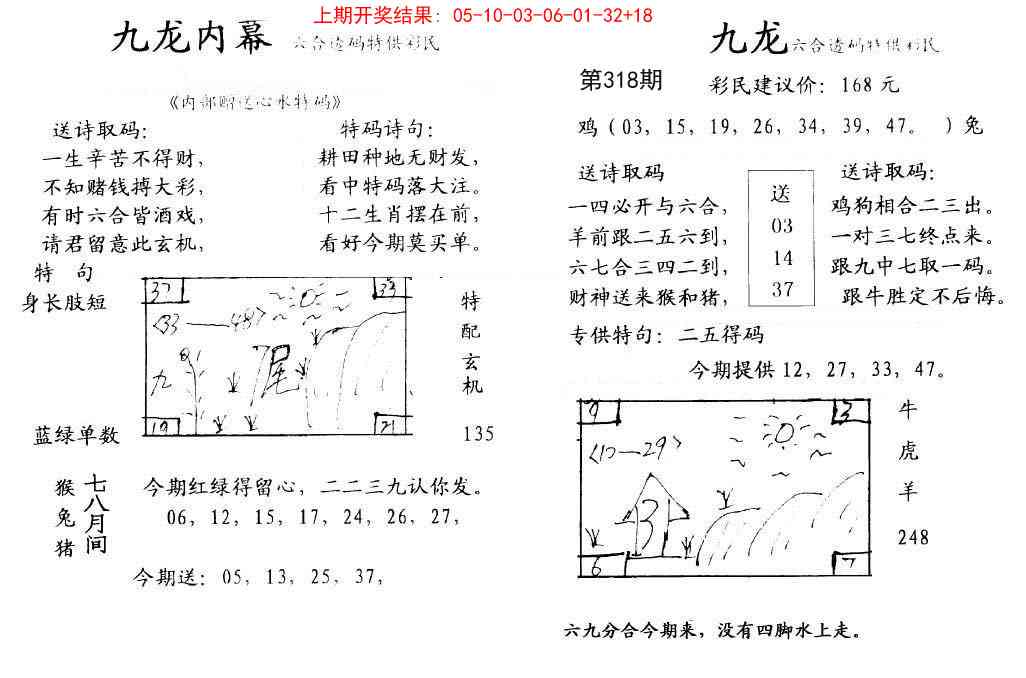 上期开奖结果：05-10-03-06-01-32+18
九龙内幕 六合透码特供彩民
《内部赠送心水特码》
送诗取码：
一生辛苦不得财，
不知赌钱搏大彩，
有时六合皆酒戏，
请君留意此玄机，
特码诗句：
耕田种地无财发，
看中特码落大注。
十二生肖摆在前，
看好今期莫买单。
特 句
身长肢短
蓝绿单数
37
33
<33——48>
九
尾
19
21
特
配
玄
机
135
猴
兔
猪
七八月间
今期红绿得留心，二二三九认你发。
06，12，15，17，24，26，27，
今期送：05，13，25，37，
九龙 六合透码特供彩民
第318期 彩民建议价：168元
鸡（03，15，19，26，34，39，47。 ）兔
送诗取码
一四必开与六合，
羊前跟二五六到，
六七合三四二到，
财神送来猴和猪，
送
03
14
37
送诗取码：
鸡狗相合二三出。
一对三七终点来。
跟九中七取一码。
跟牛胜定不后悔。
专供特句：二五得码
今期提供12，27，33，47。
9
3
6
7
牛
虎
羊
248
六九分合今期来，没有四脚水上走。